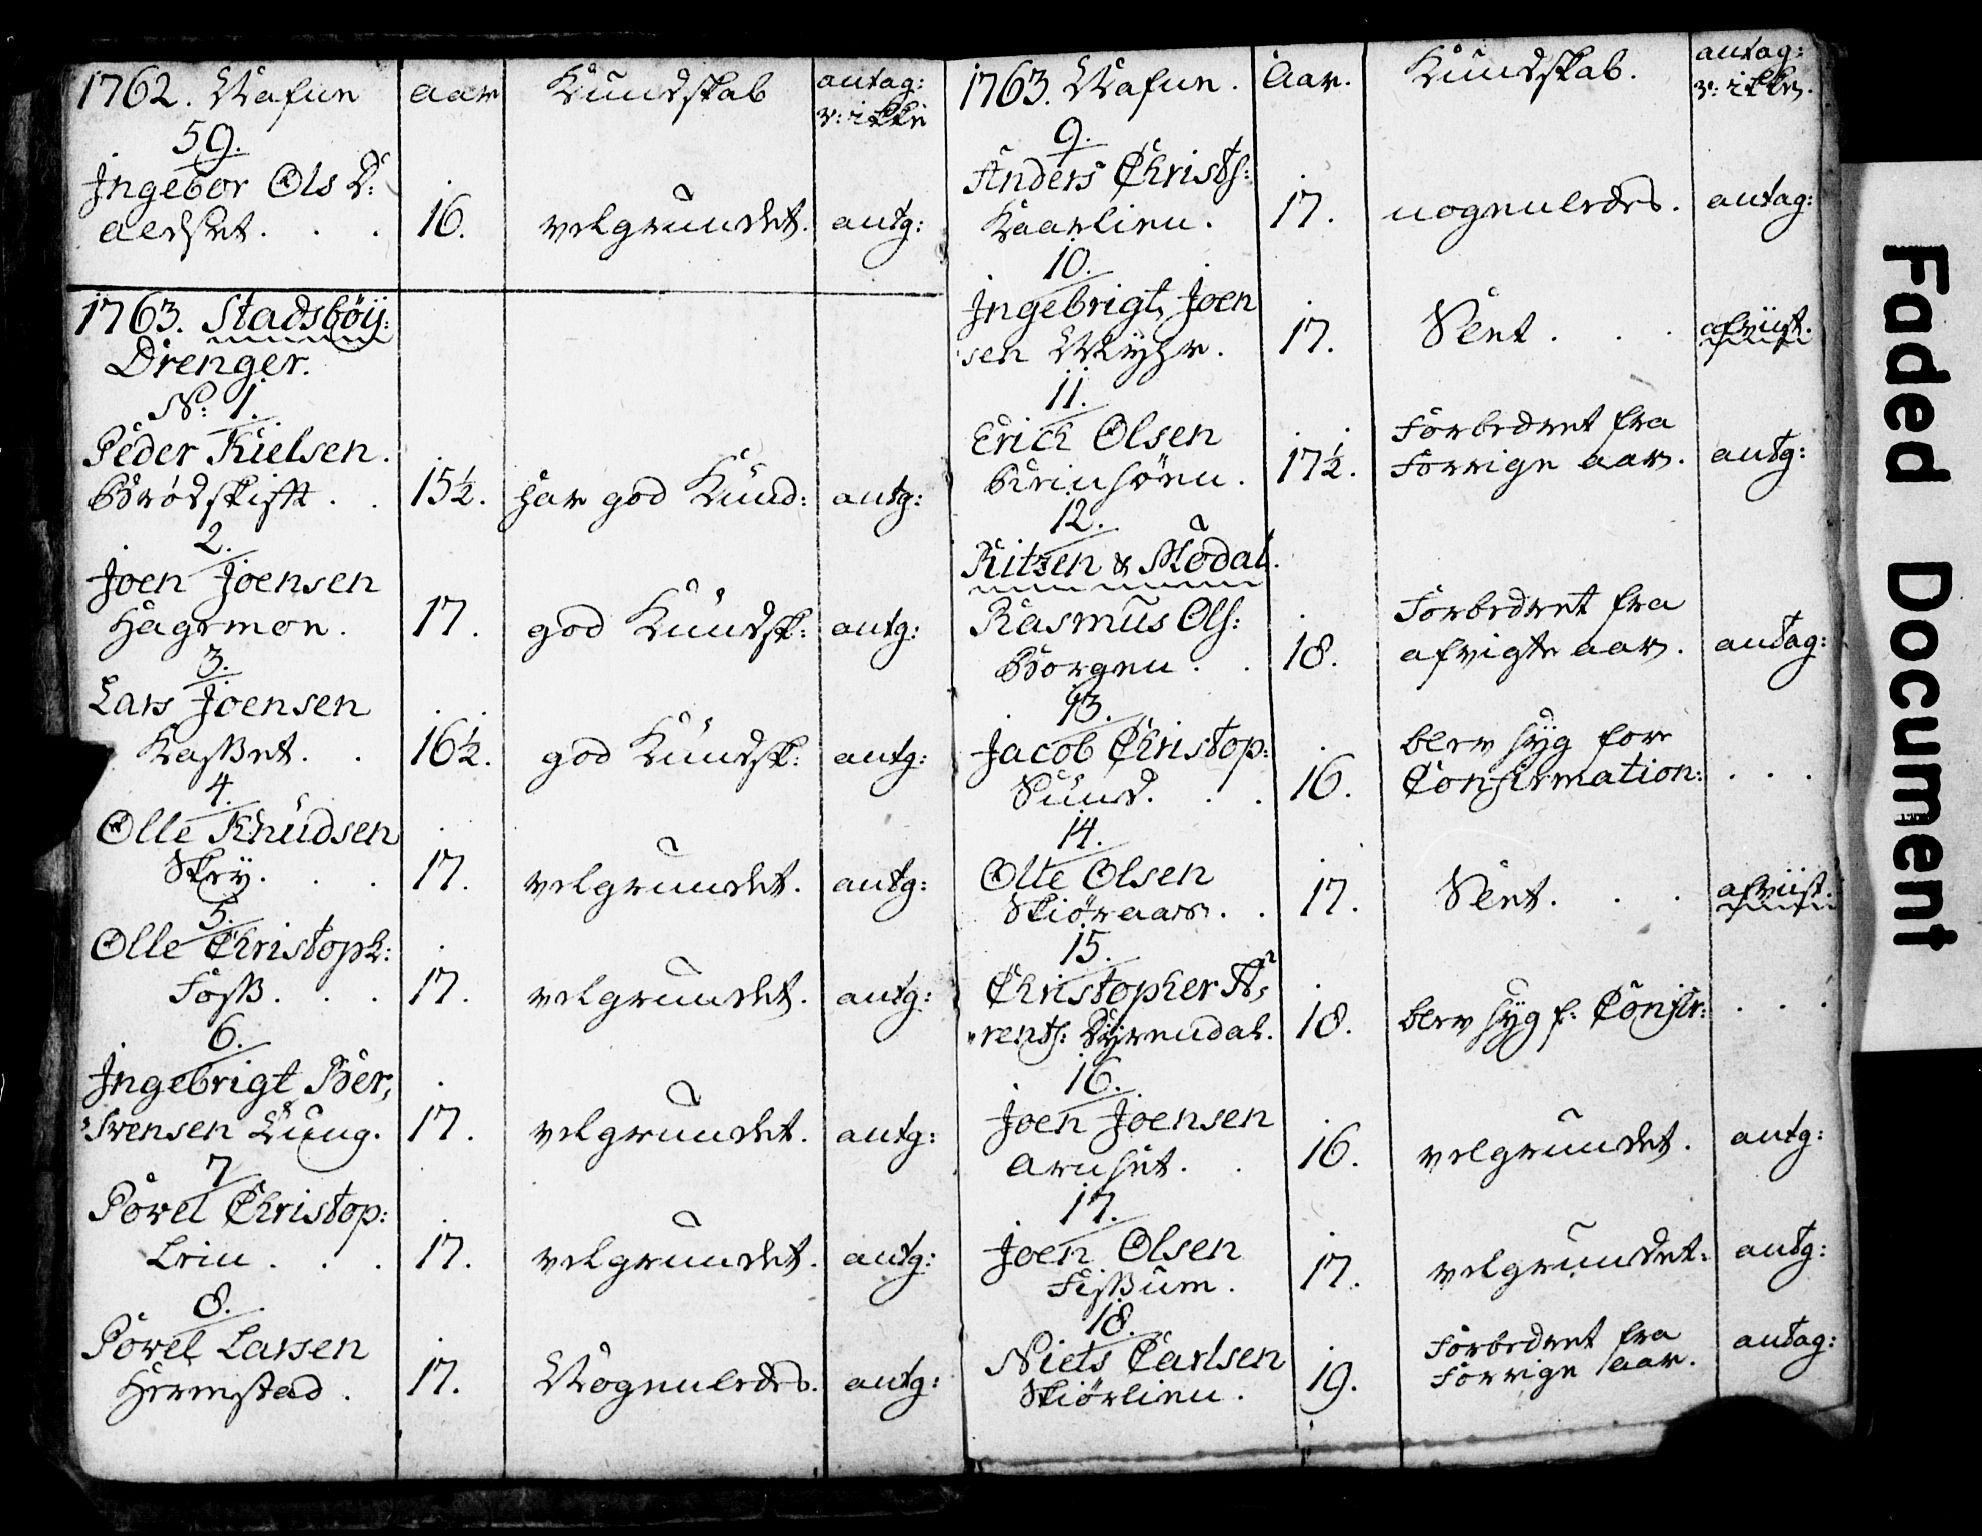 1762. Nafne
aar
Kundskab
antag:
v: ikke
59.
Ingebor Ols D:
aldset. . .
16.
velgrundet.
antg:
1763. Stadsböy:
Drenger.
N: 1.
Peder Kielsen.
Brødskift. .
15½.
har god Kund:
antg:
2.
Joen Joensen
Hagemon.
17.
god Kundsk:
antg:
3.
Lars Joensen
Kasset. .
16½.
god Kundsk:
antg:
4.
Olle Knudsen
Skey. . .
17.
velgrundet.
antg:
5.
Olle Christoph:
Foss. . .
17.
velgrundet.
antg:
6.
Ingebrigt Ber,
svensen Liung.
17.
velgrundet.
antg:
7.
Povel Christop:
Lein . . .
17.
velgrundet.
antg:
8.
Povel Larsen
Hermstad .
17.
Nogenledes.
antg:
1763. Nafne.
Aar.
Kundskab.
antag:
v: ikke.
9.
Anders Christs:
Kaarlien.
17.
nogenledes.
antag:
10.
Ingebrigt Joen
sen Myhr.
17.
Sent . . .
afviist.
11.
Erich Olsen
17½.
Forbedret fra
Forrige aar.
antg:
12.
Ritzen & Modal.
Rasmus Ols:
Borgen . .
18.
Forbedret fra
afvigte aar.
antag:
13.
Jacob Christop:
Sund. . .
16.
blev syg for
Confirmation:
. . .
14.
Olle Olsen
Skiøraas. .
17.
Sent. . .
afviist:
15.
Christopher A,
rents: Dyrendal.
18.
blev syg f: Confir:
. . .
16.
Joen Joensen
Arnset. .
16.
velgrundet.
antg:
17.
Joen Olsen
Fissum.
17.
velgrundet:
antg:
18.
Niels Carlsen
Skiørlien.
19.
Forbedret fra
Forrige aar.
antag:
Faded Document